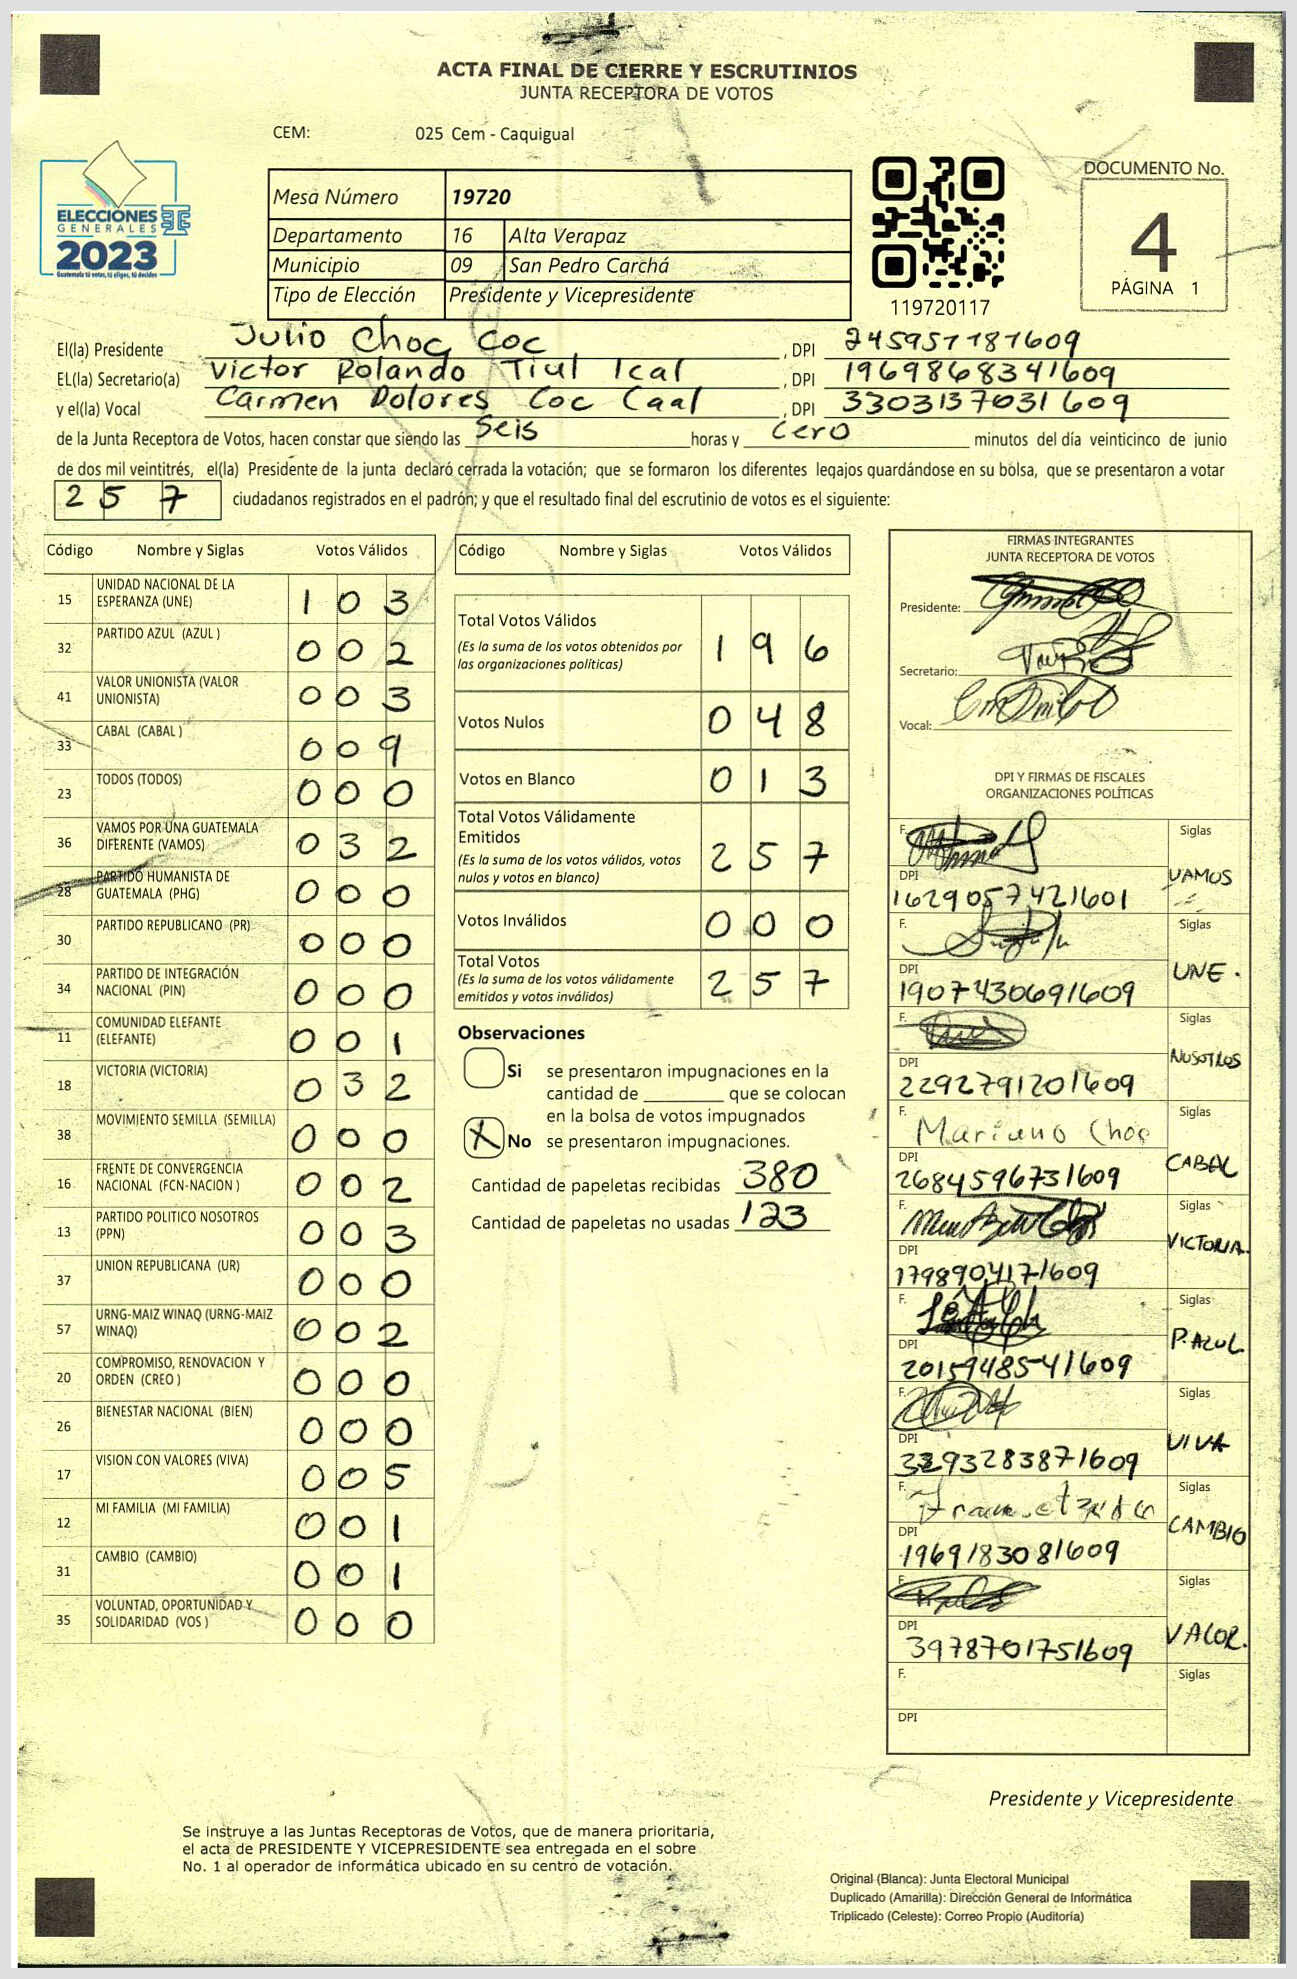 ACTA FINAL DE CIERRE Y ESCRUTINIOS
JUNTA RECEPTORA DE VOTOS
CEM: 025 Cem - Caquigual
ELECCIONES
GENERALES
2023
Guatemala tú votas, tú eliges, tú decides
Mesa Número 19720
Departamento 16 Alta Verapaz
Municipio 09 San Pedro Carchá
Tipo de Elección Presidente y Vicepresidente
119720117
DOCUMENTO No.
4
PÁGINA 1
El(la) Presidente Julio Choc Coc , DPI 2459571871609
EL(la) Secretario(a) Victor Rolando Tiul Ical , DPI 1969868341609
y el(la) Vocal Carmen Dolores Coc Caal , DPI 3303137031609
de la Junta Receptora de Votos, hacen constar que siendo las Seis horas y Cero minutos del día veinticinco de junio
de dos mil veintitrés, el(la) Presidente de la junta declaró cerrada la votación; que se formaron los diferentes legajos guardándose en su bolsa, que se presentaron a votar
257 ciudadanos registrados en el padrón; y que el resultado final del escrutinio de votos es el siguiente:
Código Nombre y Siglas Votos Válidos
15 UNIDAD NACIONAL DE LA ESPERANZA (UNE) 103
32 PARTIDO AZUL (AZUL ) 002
41 VALOR UNIONISTA (VALOR UNIONISTA) 003
33 CABAL (CABAL ) 009
23 TODOS (TODOS) 000
36 VAMOS POR UNA GUATEMALA DIFERENTE (VAMOS) 032
28 PARTIDO HUMANISTA DE GUATEMALA (PHG) 000
30 PARTIDO REPUBLICANO (PR) 000
34 PARTIDO DE INTEGRACIÓN NACIONAL (PIN) 000
11 COMUNIDAD ELEFANTE (ELEFANTE) 001
18 VICTORIA (VICTORIA) 032
38 MOVIMIENTO SEMILLA (SEMILLA) 000
16 FRENTE DE CONVERGENCIA NACIONAL (FCN-NACION ) 002
13 PARTIDO POLITICO NOSOTROS (PPN) 003
37 UNION REPUBLICANA (UR) 000
57 URNG-MAIZ WINAQ (URNG-MAIZ WINAQ) 002
20 COMPROMISO, RENOVACION Y ORDEN (CREO ) 000
26 BIENESTAR NACIONAL (BIEN) 000
17 VISION CON VALORES (VIVA) 005
12 MI FAMILIA (MI FAMILIA) 001
31 CAMBIO (CAMBIO) 001
35 VOLUNTAD, OPORTUNIDAD Y SOLIDARIDAD (VOS ) 000
Código Nombre y Siglas Votos Válidos
Total Votos Válidos 196
(Es la suma de los votos obtenidos por
las organizaciones políticas)
Votos Nulos 048
Votos en Blanco 013
Total Votos Válidamente
Emitidos 257
(Es la suma de los votos válidos, votos
nulos y votos en blanco)
Votos Inválidos 000
Total Votos 257
(Es la suma de los votos válidamente
emitidos y votos inválidos)
Observaciones
Si se presentaron impugnaciones en la
cantidad de ________ que se colocan
en la bolsa de votos impugnados
X No se presentaron impugnaciones.
Cantidad de papeletas recibidas 380
Cantidad de papeletas no usadas 123
FIRMAS INTEGRANTES
JUNTA RECEPTORA DE VOTOS
Presidente:
Secretario:
Vocal:
DPI Y FIRMAS DE FISCALES
ORGANIZACIONES POLÍTICAS
F. Siglas
DPI VAMOS
1629057421601
F. Siglas
DPI UNE.
1907430691609
F. Siglas
DPI NOSOTROS
2292791201609
F. Mariano Choc Siglas
DPI CABAL
2684596731609
F. Siglas
DPI VICTORIA
1798904171609
F. Siglas
DPI P. AZUL
2015948541609
F. Siglas
DPI VIVA
3293283871609
F. Siglas
DPI CAMBIO
1969183081609
F. Siglas
DPI VALOR.
3978701751609
F. Siglas
DPI
Presidente y Vicepresidente
Se instruye a las Juntas Receptoras de Votos, que de manera prioritaria,
el acta de PRESIDENTE Y VICEPRESIDENTE sea entregada en el sobre
No. 1 al operador de informática ubicado en su centro de votación.
Original (Blanca): Junta Electoral Municipal
Duplicado (Amarilla): Dirección General de Informática
Triplicado (Celeste): Correo Propio (Auditoría)